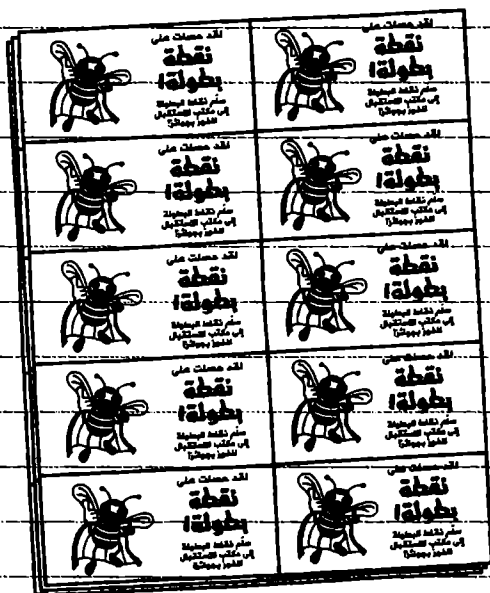 لقد حصلت على
نقطة
بطولة!
سلّم نقاط البطولة
إلى مكتب الاستقبال
للفوز بجوائز!
لقد حصلت على
نقطة
بطولة!
سلّم نقاط البطولة
إلى مكتب الاستقبال
للفوز بجوائز!
لقد حصلت على
نقطة
بطولة!
سلّم نقاط البطولة
إلى مكتب الاستقبال
للفوز بجوائز!
لقد حصلت على
نقطة
بطولة!
سلّم نقاط البطولة
إلى مكتب الاستقبال
للفوز بجوائز!
لقد حصلت على
نقطة
بطولة!
سلّم نقاط البطولة
إلى مكتب الاستقبال
للفوز بجوائز!
لقد حصلت على
نقطة
بطولة!
سلّم نقاط البطولة
إلى مكتب الاستقبال
للفوز بجوائز!
لقد حصلت على
نقطة
بطولة!
سلّم نقاط البطولة
إلى مكتب الاستقبال
للفوز بجوائز!
لقد حصلت على
نقطة
بطولة!
سلّم نقاط البطولة
إلى مكتب الاستقبال
للفوز بجوائز!
لقد حصلت على
نقطة
بطولة!
سلّم نقاط البطولة
إلى مكتب الاستقبال
للفوز بجوائز!
لقد حصلت على
نقطة
بطولة!
سلّم نقاط البطولة
إلى مكتب الاستقبال
للفوز بجوائز!